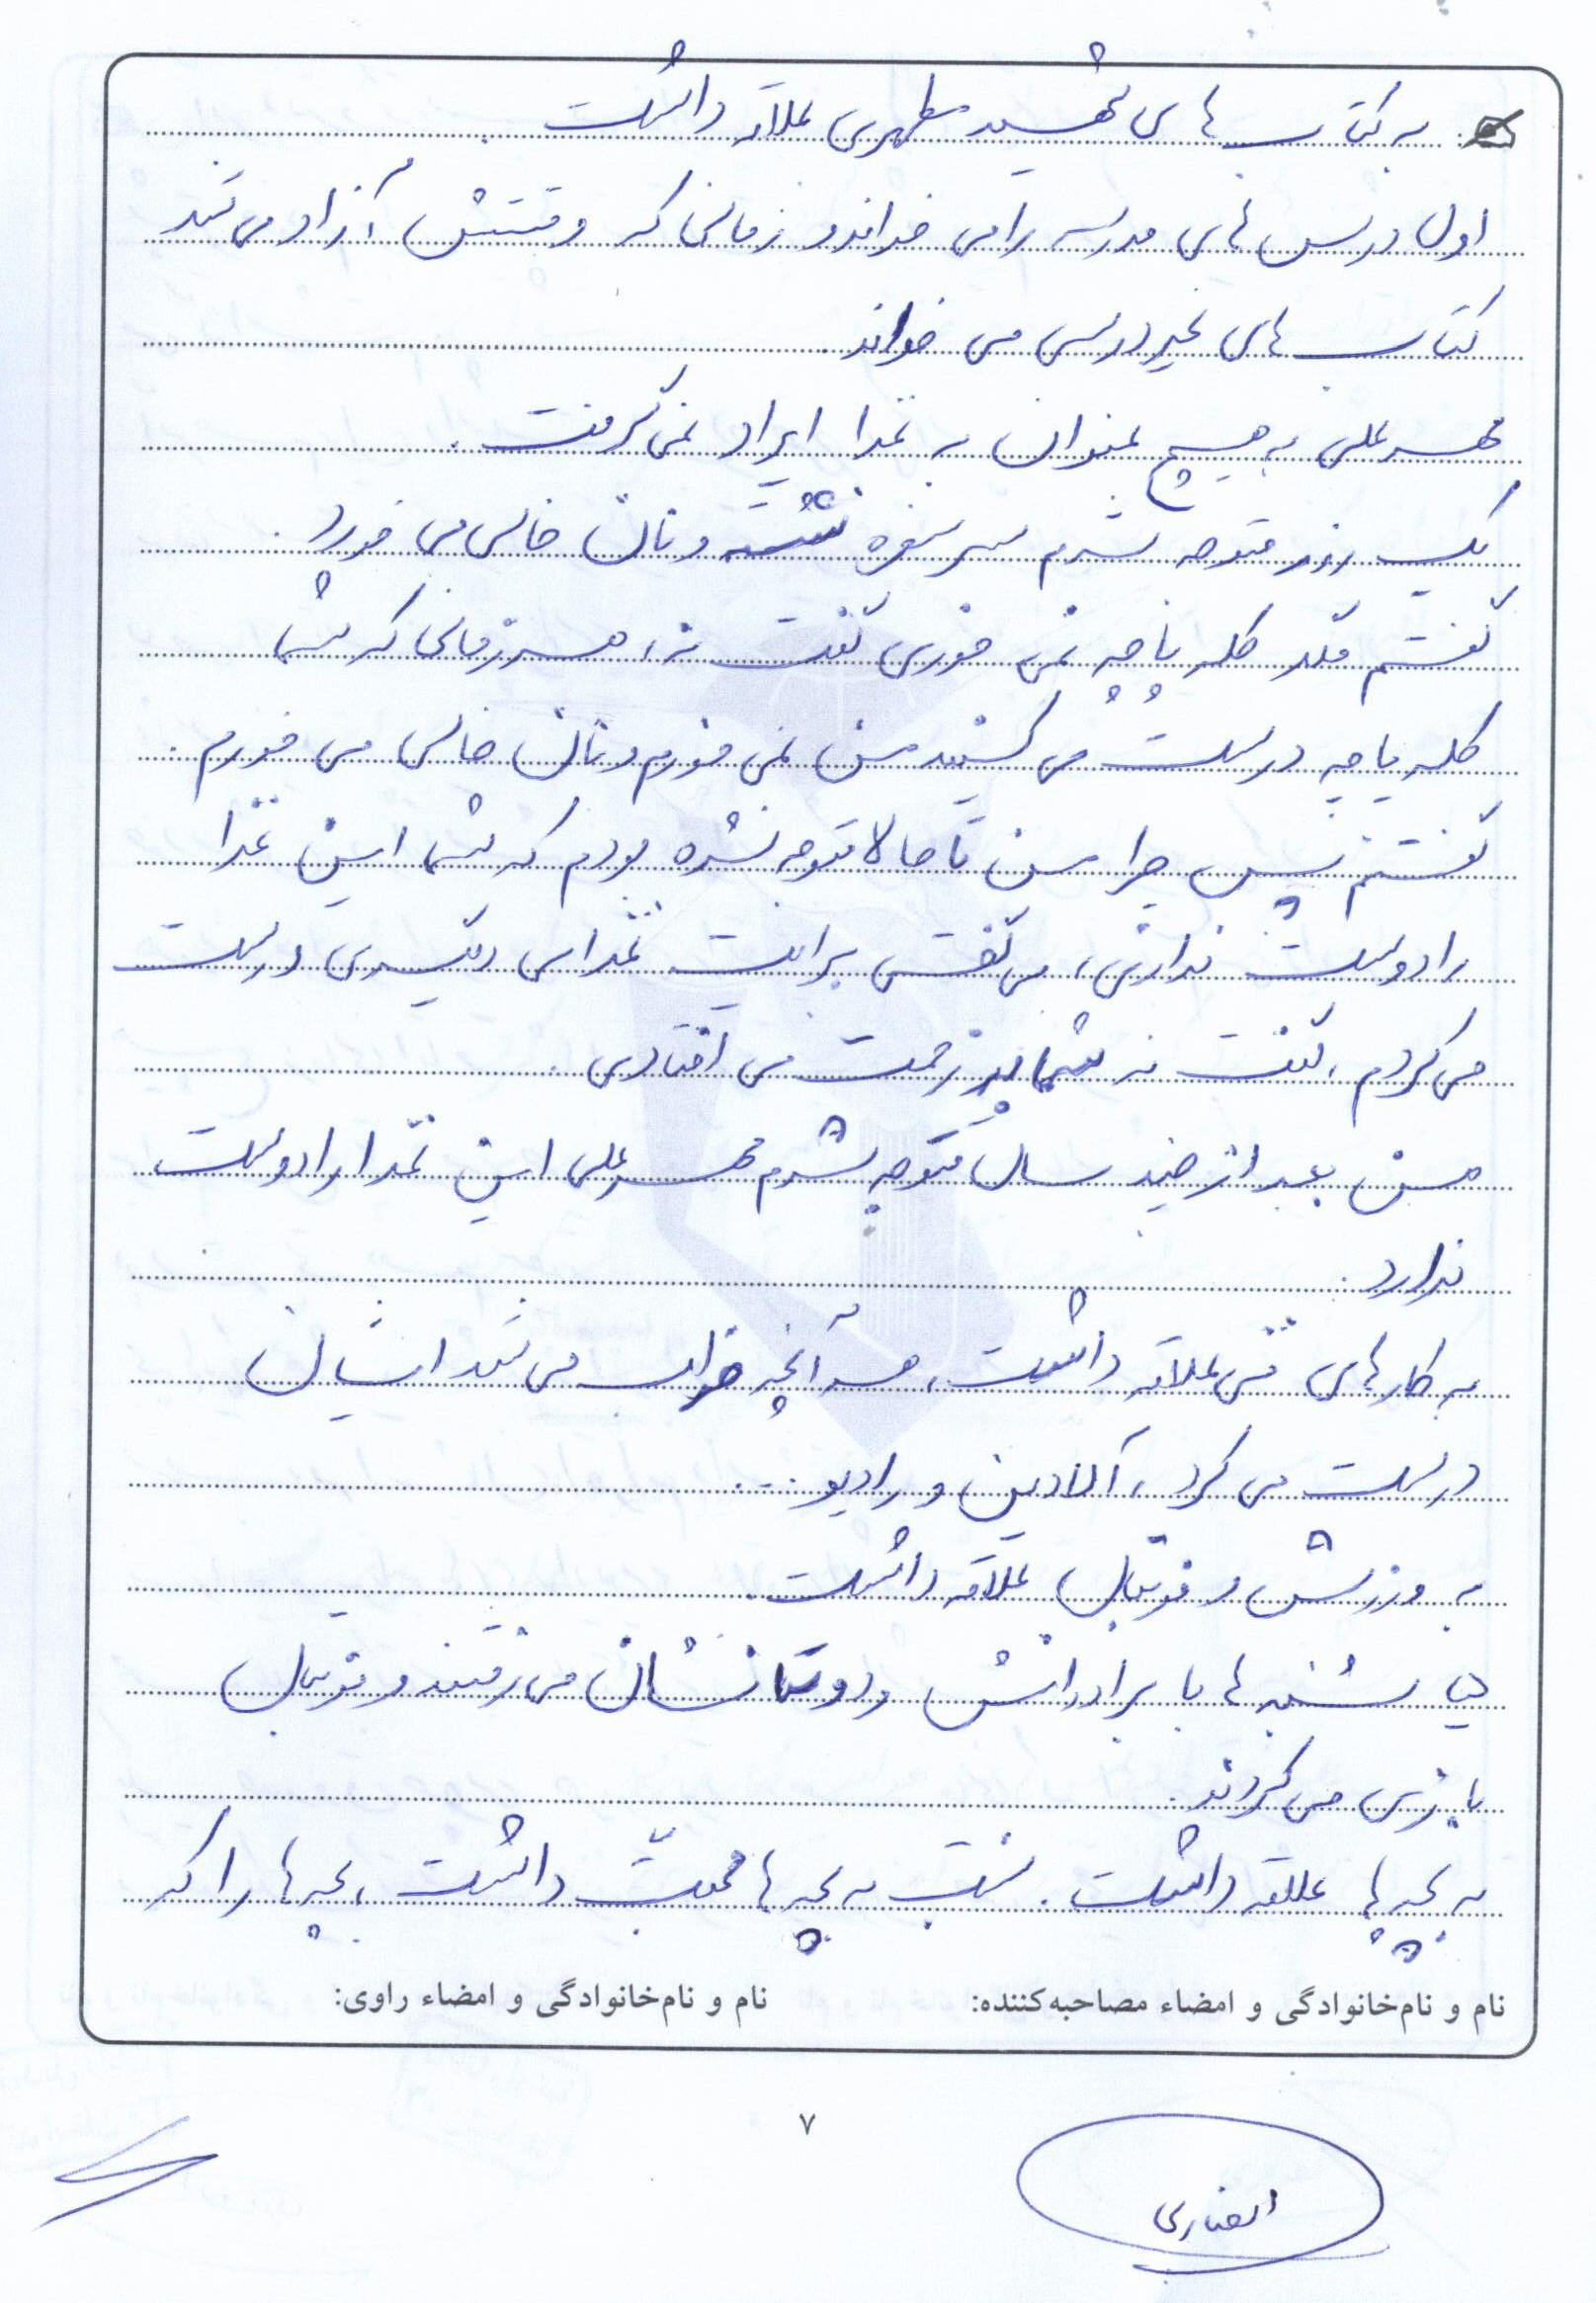 به کتاب های شهید مطهری علاقه داشت.
اول درس های مدرسه را می خواند و زمانی که وقتش آزاد می شد
کتاب های غیر درسی می خواند.
مهر علی به هیچ عنوان به غذا ایراد نمی گرفت.
یک روز متوجه شدم سر سفره نشسته و نان خالی می خورد.
گفتم مگر کله پاچه نمی خوری گفت نه، هر زمانی که شما
کله پاچه درست می کنید من نمی خورم و نان خالی می خورم.
گفتم پس چرا من تا حالا متوجه نشده بودم که شما این غذا
را دوست نداری، می گفتی برایت غذای دیگری درست
می کردم، گفت نه شما به زحمت می افتادی.
من بعد از چند سال متوجه شدم مهر علی این غذا را دوست
ندارد.
به کارهای فنی علاقه داشت، هر آنچه خراب می شد ایشان
درست می کرد، آلادین و رادیو ...
به ورزش و فوتبال علاقه داشت.
شنبه ها با برادرانش و دوستانشان می رفتند و فوتبال
بازی می کردند.
به بچه ها علاقه داشت. نسبت به بچه ها محبت داشت، بچه ها را که
نام و نام‌خانوادگی و امضاء مصاحبه‌کننده: نام و نام‌خانوادگی و امضاء راوی:
۷
انصاری